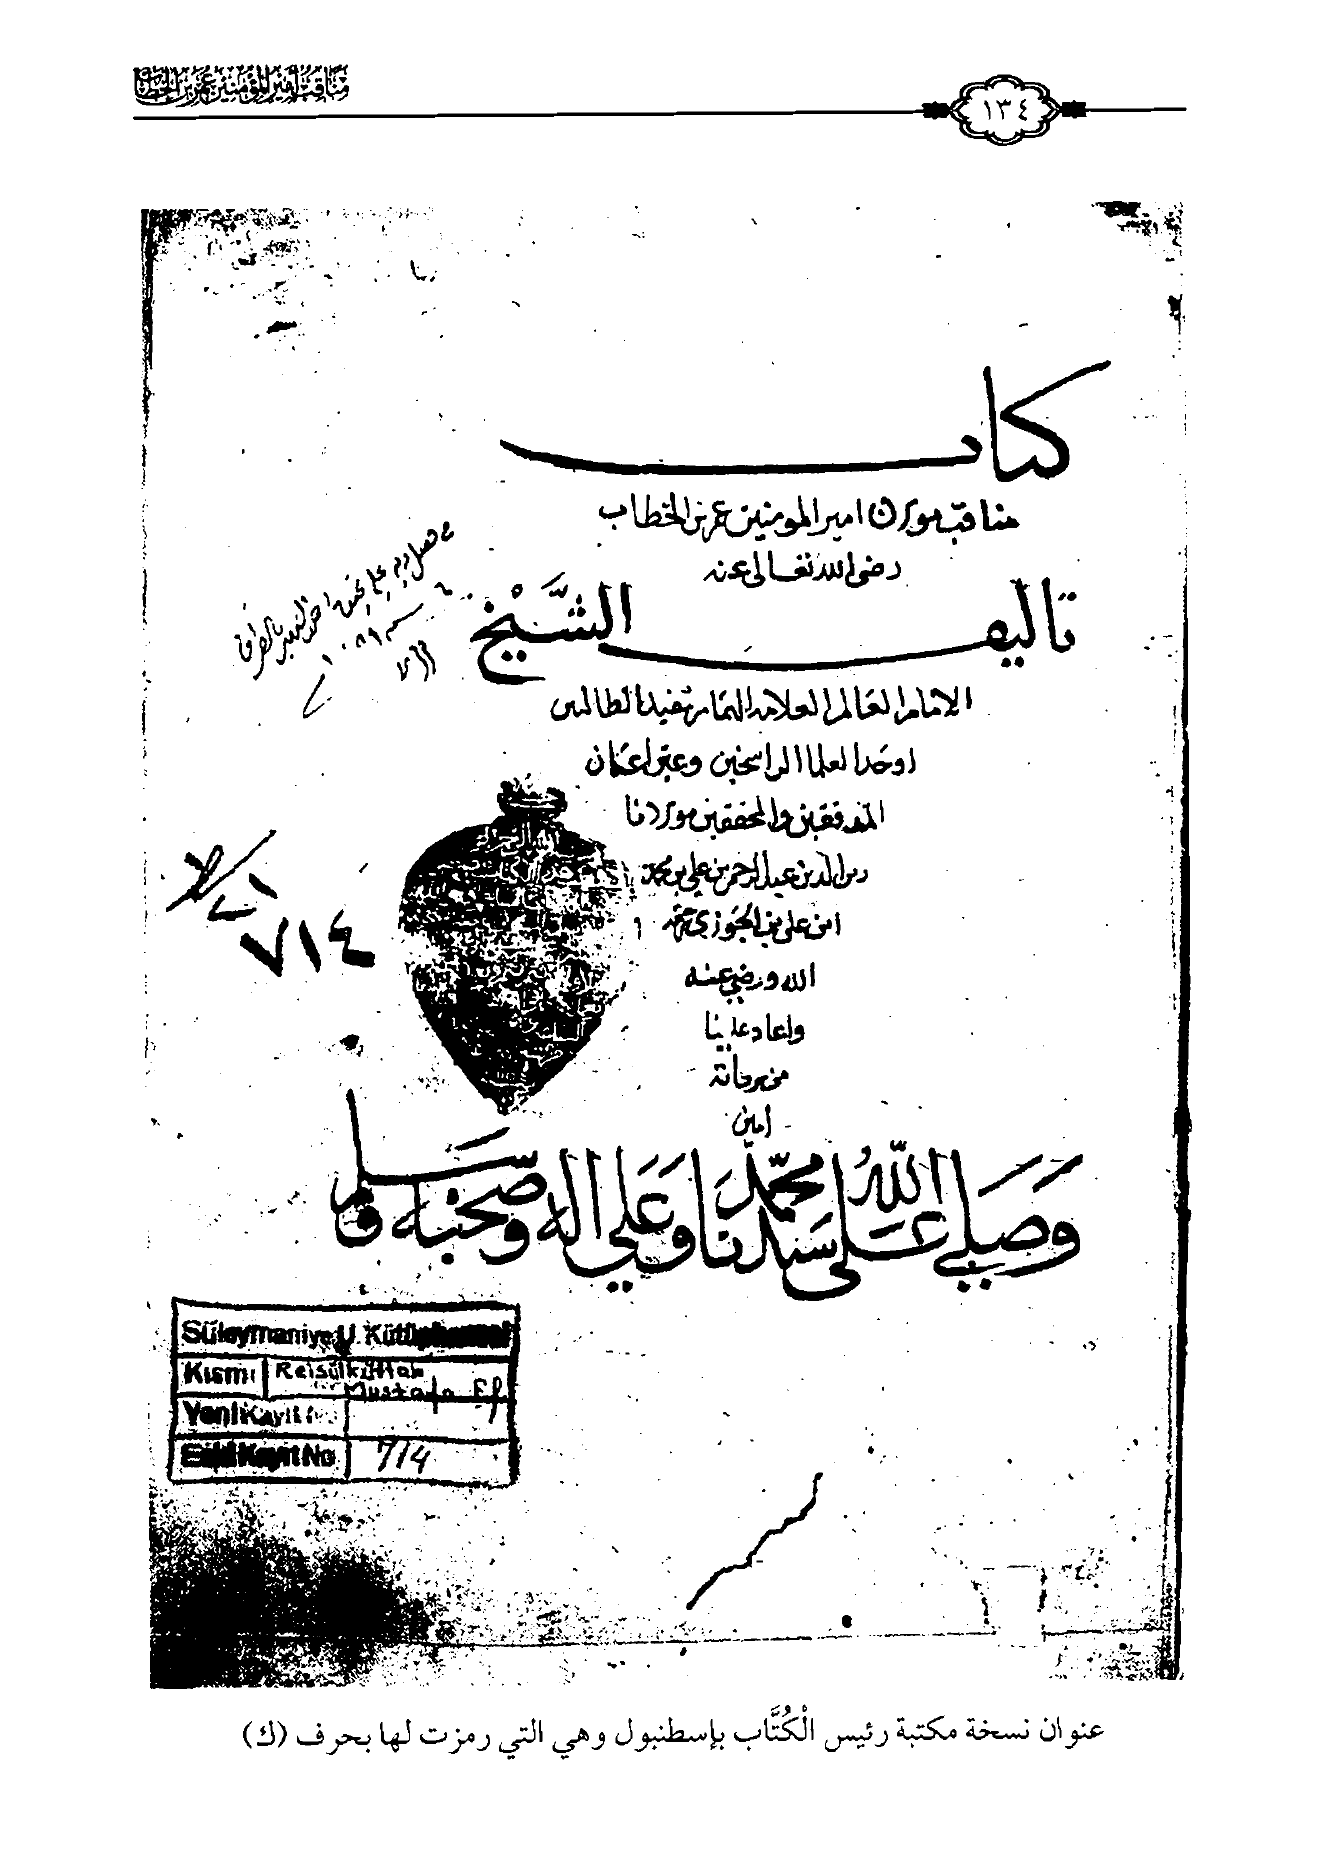 مناقب أمير المؤمنين عمر بن الخطاب
١٣٤
كتاب
مناقب مولانا امير المومنين عمر بن الخطاب
رضى الله تعالى عنه
تاليف الشيخ
الامام العالم العلامه الهمام مفيد الطالبين
اوحد العلما الراسخين وعين اعيان
المدققين والمحققين مولانا
عبد الرحمن بن علي بن محمد
ابن علي بن الجوزي رحمه
الله ورضي عنه
واعاد علينا
من بركاته
امين
وصلى الله على سيدنا محمد وعلى اله وصحبه وسلم
٧١٤
Süleymaniye U. Kütüphanesi
Kısmı Reisülküttab Mustafa Ef.
Yeni Kayıt No
Eski Kayıt No 714
عنوان نسخة مكتبة رئيس الْكُتَّاب بإسطنبول وهي التي رمزت لها بحرف (ك)